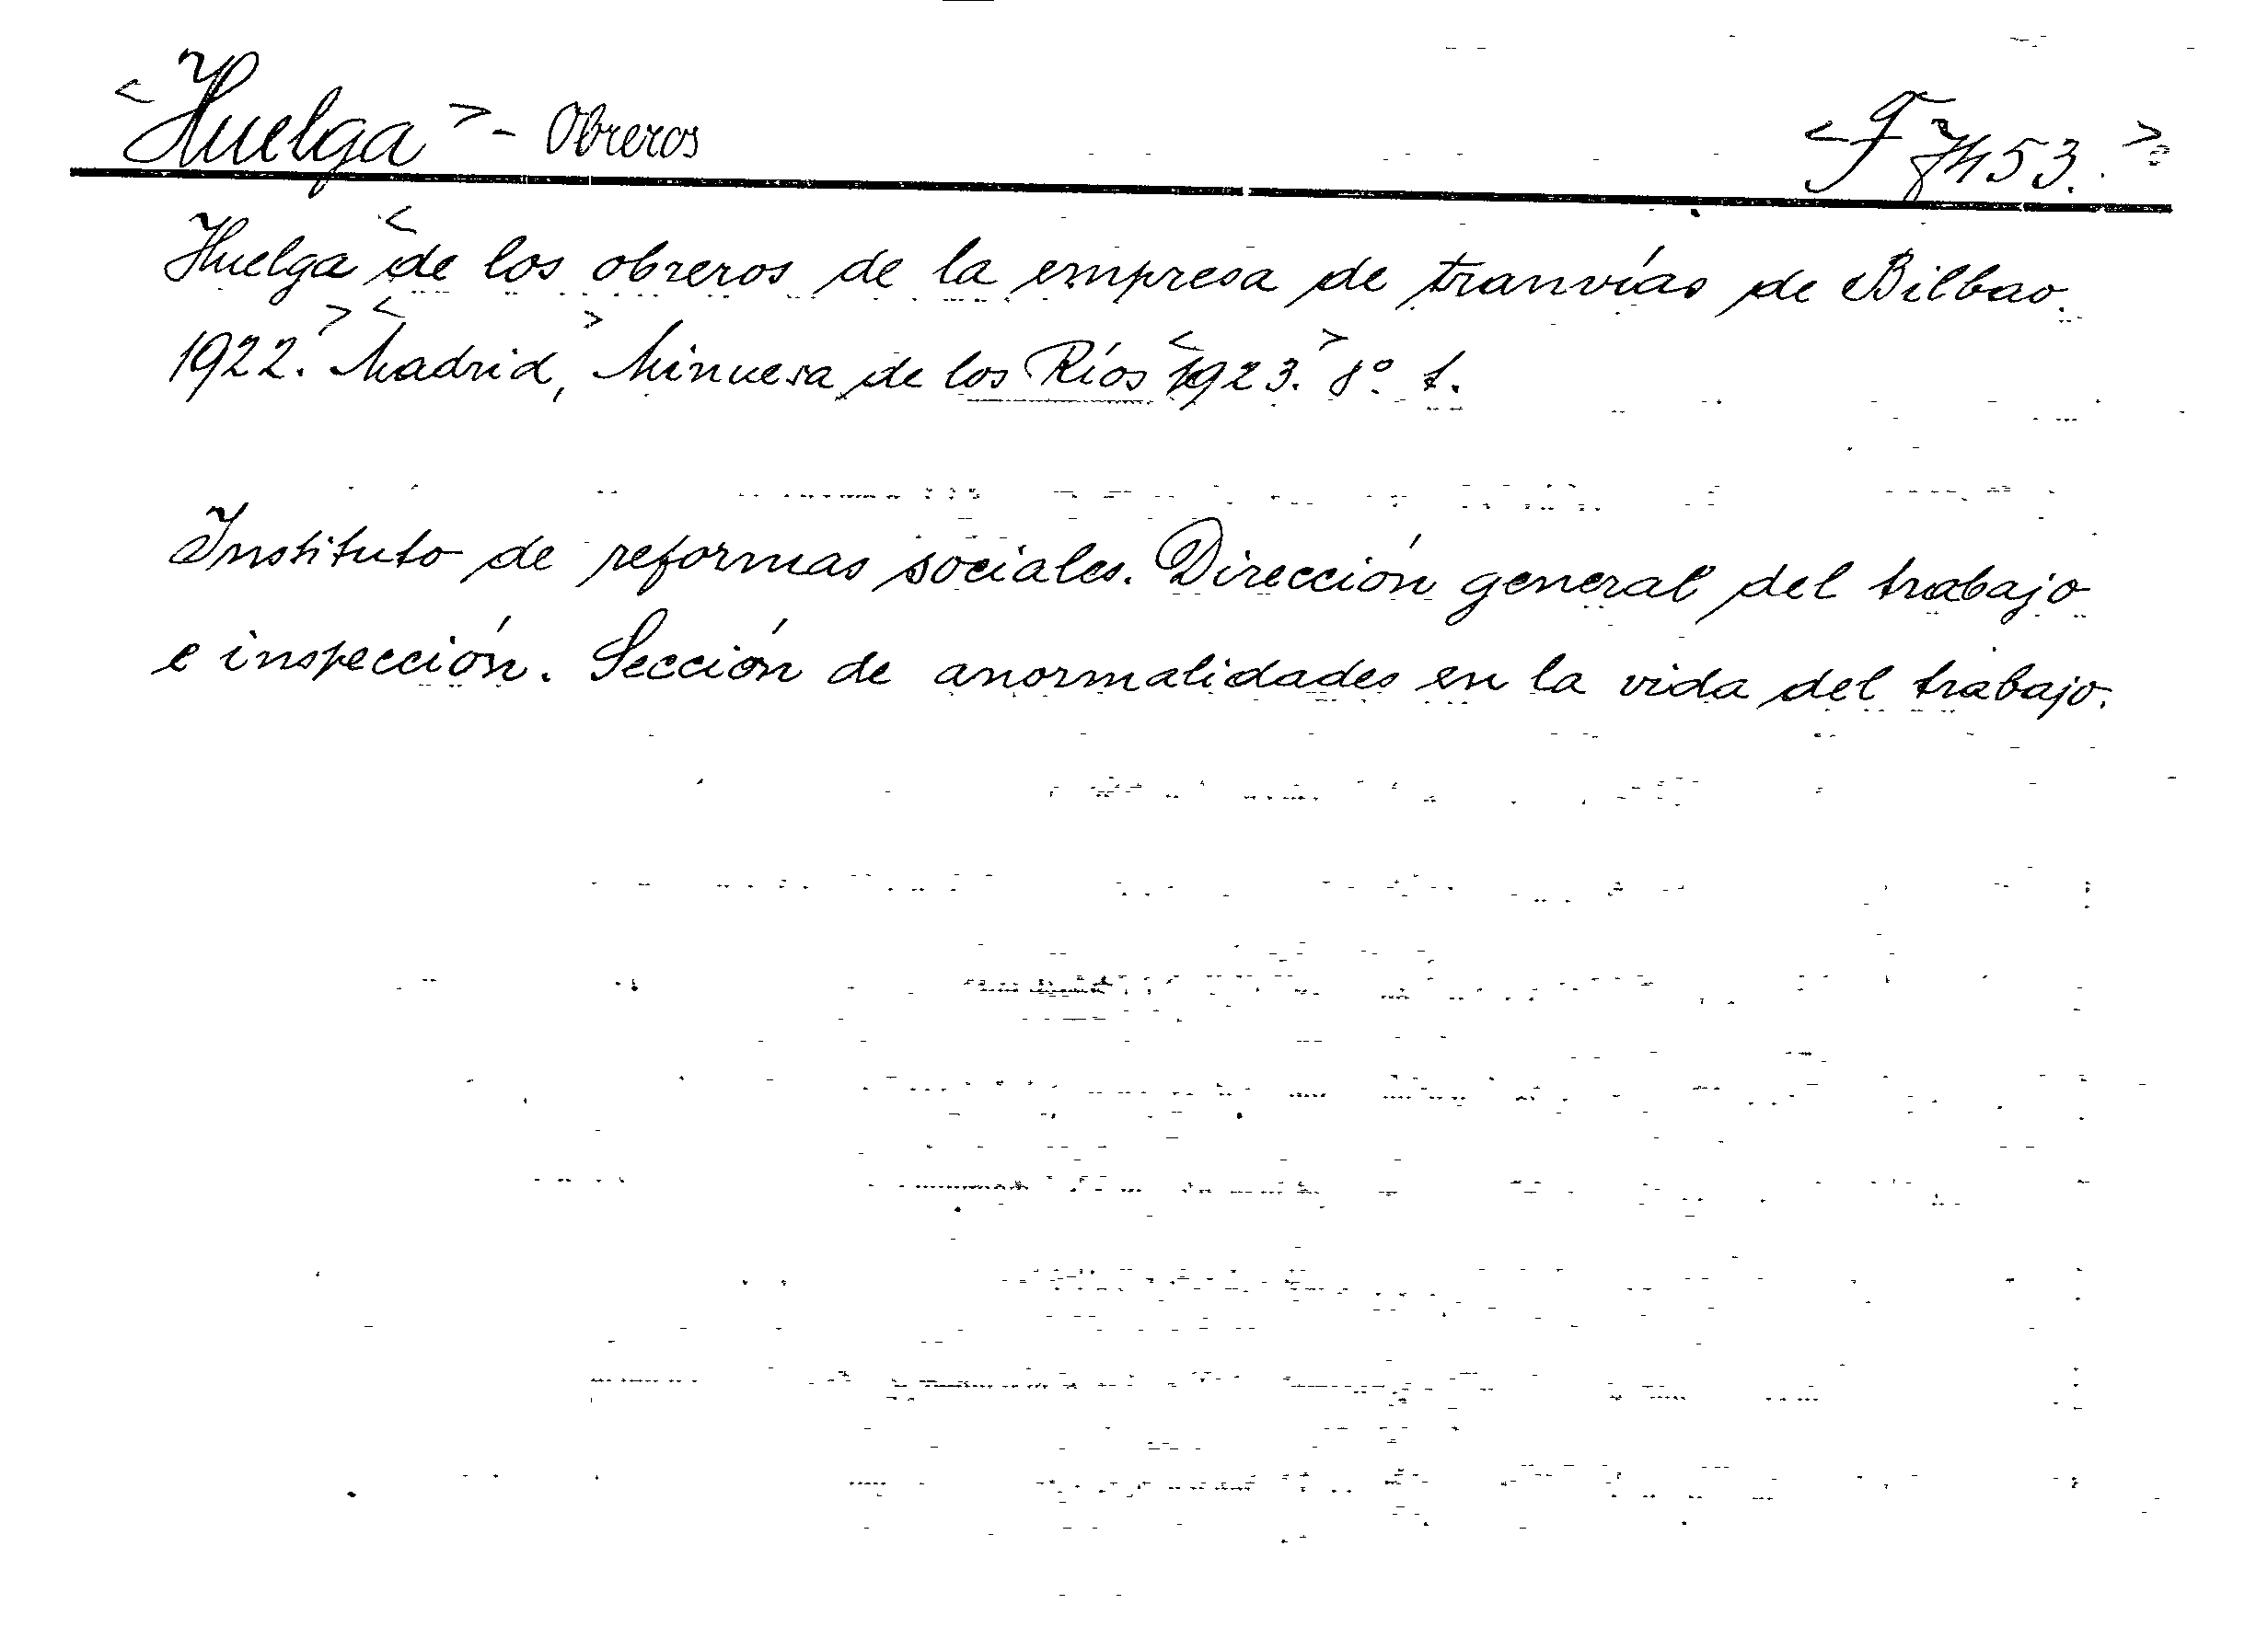 <Huelga> - Obreros <F 7453.>
Huelga <de los obreros de la empresa de tranvías de Bilbao.
1922.> <Madrid,> Minuesa de los Ríos <1923.> 8º
Instituto de reformas sociales. Dirección general del trabajo
e inspección. Sección de anormalidades en la vida del trabajo.